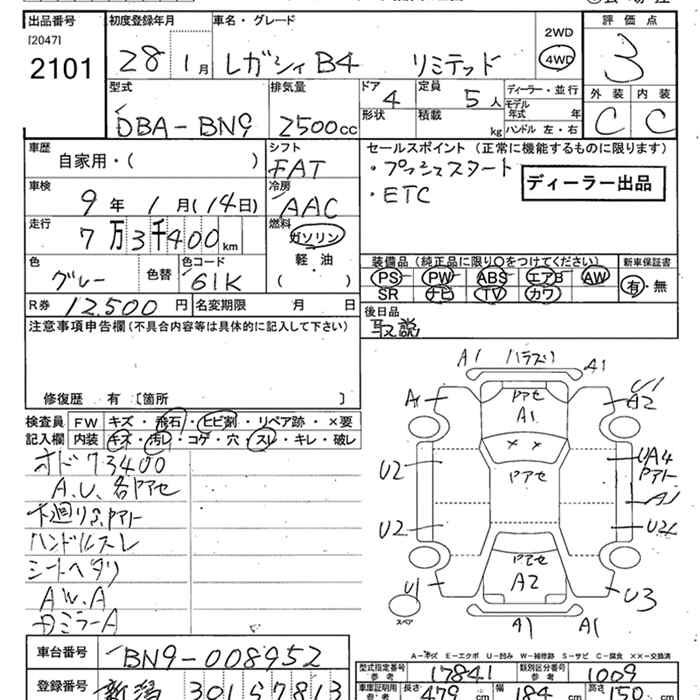 出品番号 初度登録年月 車名・グレード 評価点
[2047]
2101 28 1月 レガシィB4 リミテッド 2WD 4WD 3
型式 排気量 ドア 定員 ディーラー・並行 外装 内装
DBA-BN9 2500cc 4 5人 モデル年式 年
形状 積載 kg ハンドル 左・右 C C
車歴 シフト セールスポイント(正常に機能するものに限ります)
自家用・( ) FAT ・プッシュスタート
車検 冷房 ・ETC ディーラー出品
9年 1月(14日) AAC
走行 燃料
7万3千400km ガソリン
軽油
( )
装備品(純正品に限り○をつけてください) 新車保証書
PS PW ABS エアB AW 有・無
SR ナビ TV カワ
色 色替 色コード
グレー 61K
後日品
取説
R券 12,500円 名変期限 月 日
注意事項申告欄(不具合内容等は具体的に記入して下さい)
修復歴 有〔箇所 〕
検査員 FW キズ・飛石・ヒビ割・リペア跡・×要
記入欄 内装 キズ・汚レ・コゲ・穴・スレ・キレ・破レ
オド73400
A.U、各アセ
下廻りS
ハンドルスレ
シートヘタリ
AW.A
ミラーA
A1 A1
A1 A1 U1
A2
U2 UA4
A1
U2
U1 A2 U3
スペア
A1 A1
A-キズ E-エクボ U-凹み W-補修跡 S-サビ C-腐食 ××-交換済
車台番号 BN9-008952
型式指定番号 参考 17841 類別区分番号 参考 1009
登録番号 新潟 301 57813
車庫証明用 参考 長さ 479cm 幅 184cm 高さ 150cm